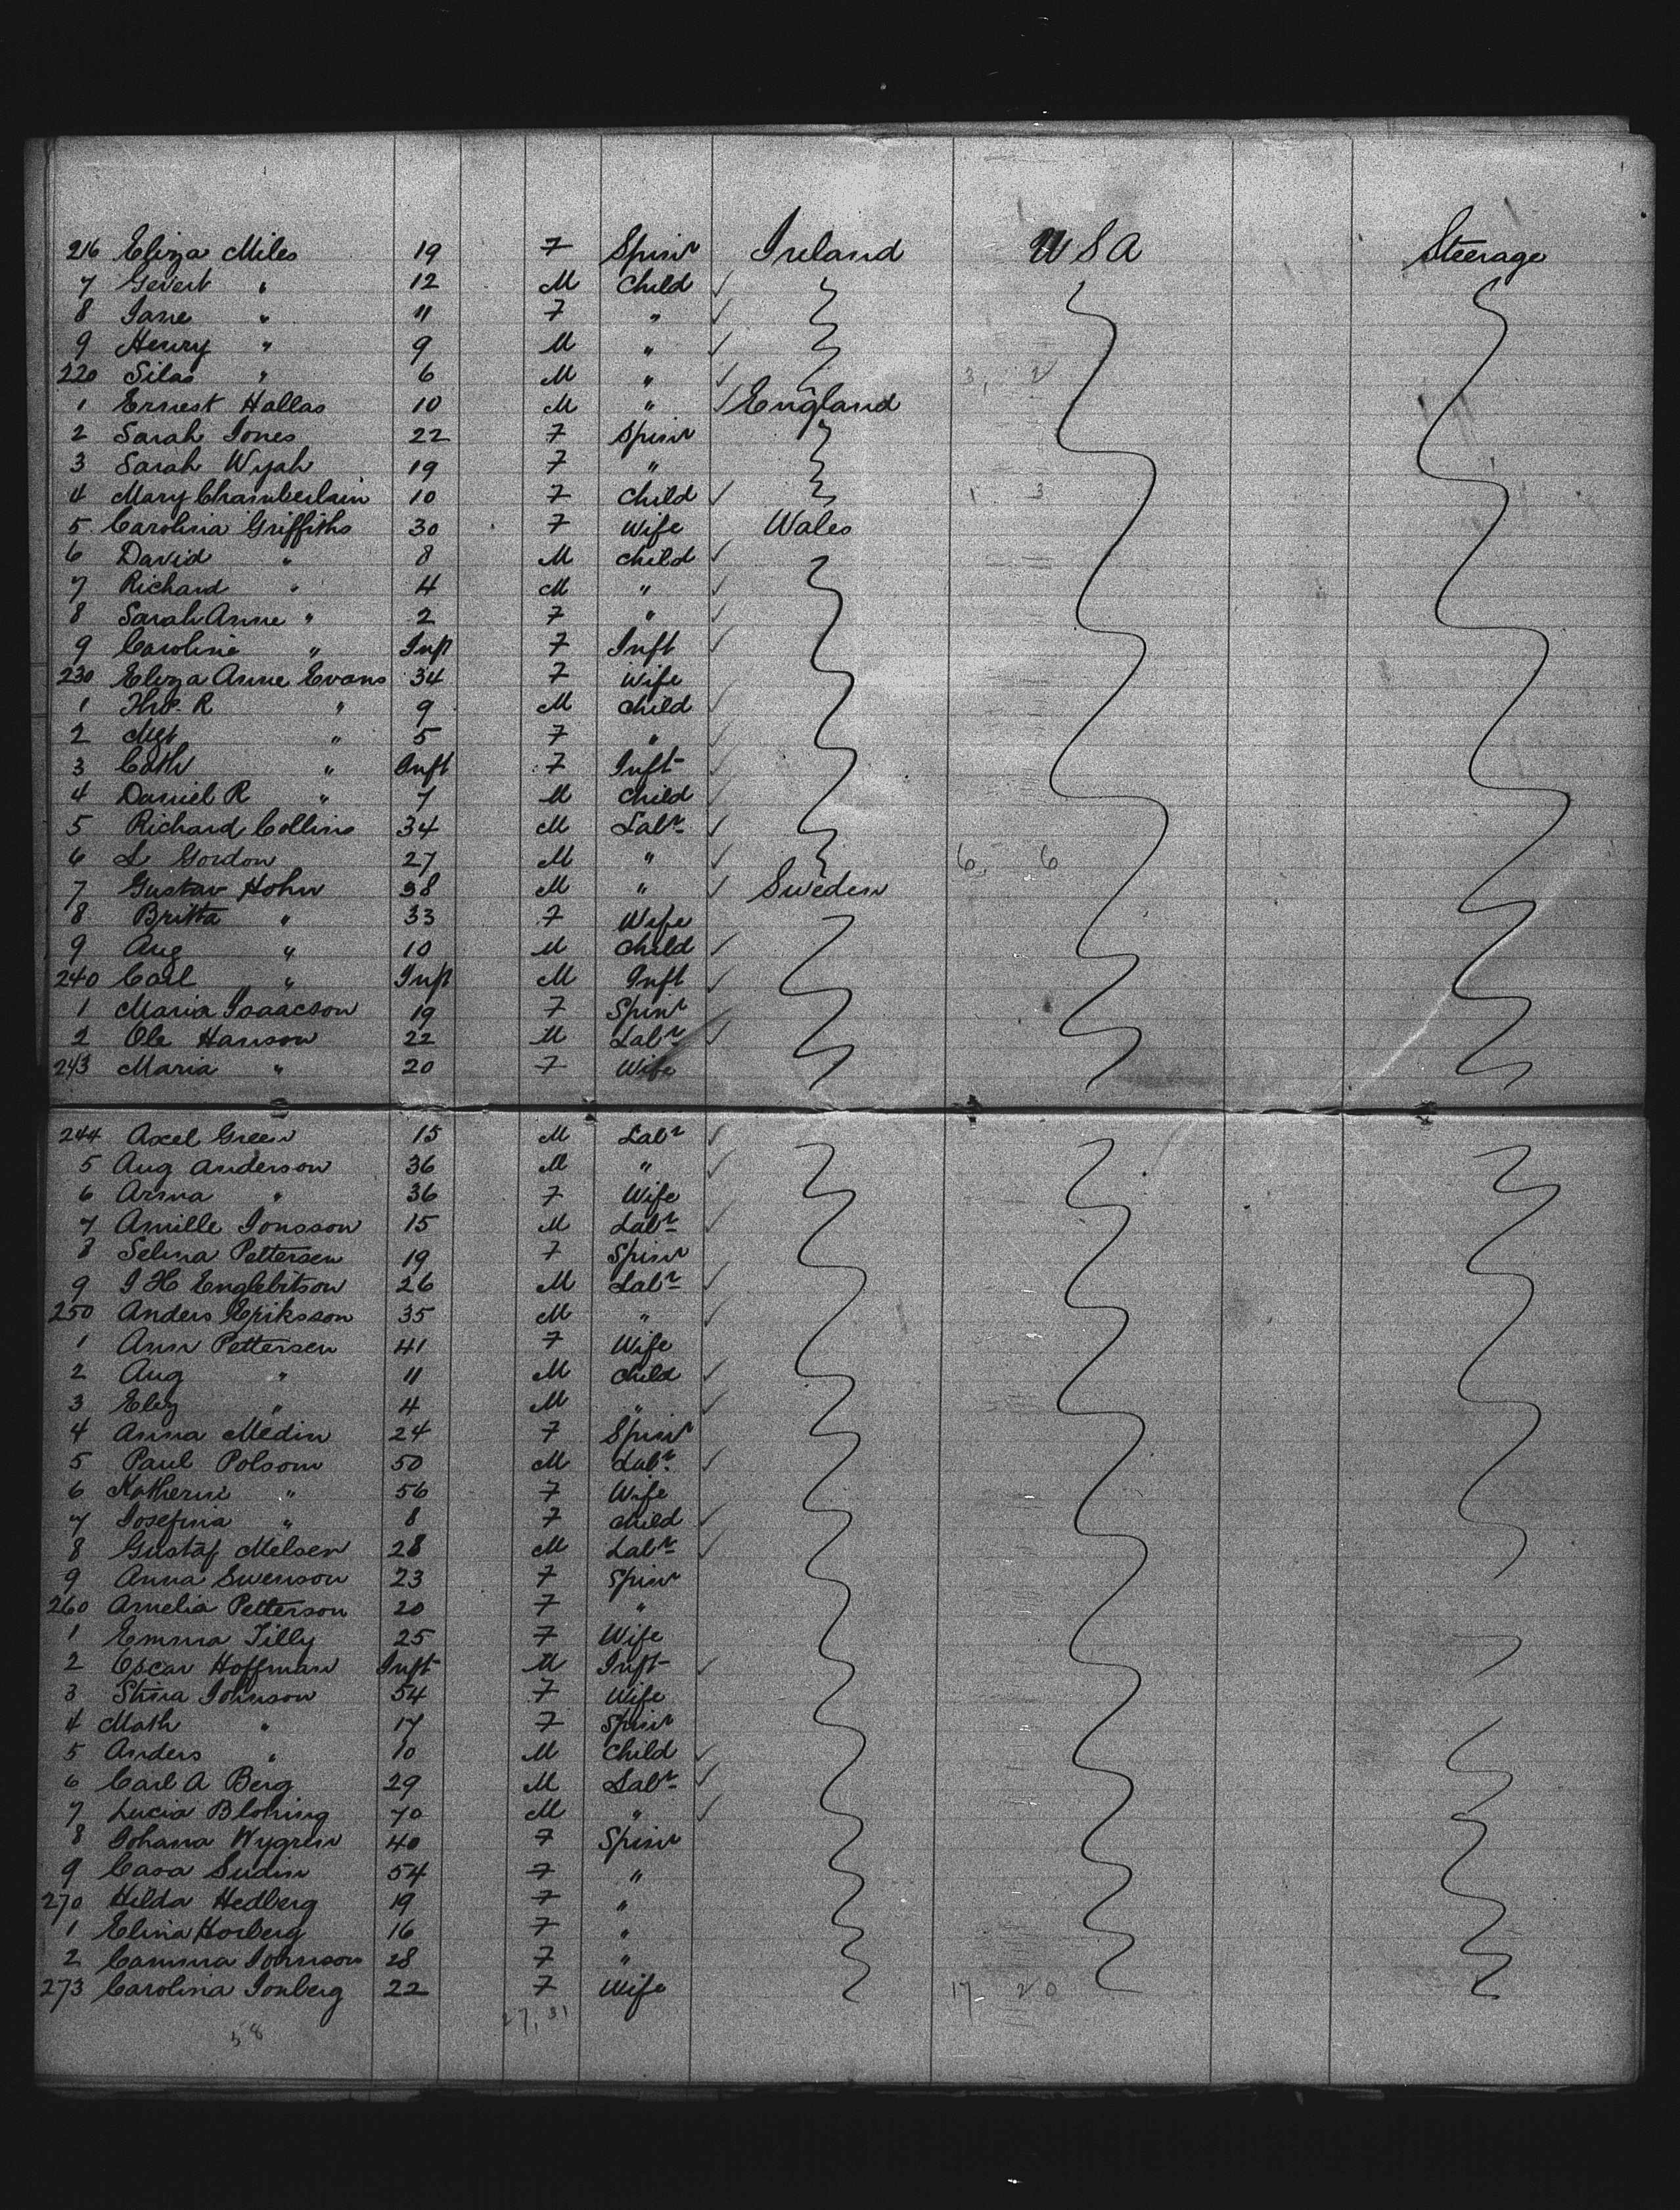 216 Eliza Miles 19 F Spinr Ireland USA Steerage
7 Gevert " 12 M Child ✓
8 Jane " 11 F " ✓
9 Henry " 9 M " ✓
220 Silas " 6 M " ✓ 3, 2
1 Ernest Hallas 10 M " ✓ England
2 Sarah Jones 22 F Spinr
3 Sarah Wyah 19 F "
4 Mary Chamberlain 10 F Child ✓ 1 3
5 Carolina Griffiths 30 F Wife Wales
6 David " 8 M Child ✓
7 Richard " 4 M " ✓
8 Sarah Anne " 2 F " ✓
9 Caroline " Inft F Inft ✓
230 Eliza Anne Evans 34 F Wife
1 Thos. R " 9 M Child ✓
2 Mgt " 5 F " ✓
3 Cath " Inft F Inft ✓
4 Daniel R " 7 M Child ✓
5 Richard Collins 34 M Labr ✓
6 L Gordon 27 M " ✓ 6, 6
7 Gustav Hohn 38 M " ✓ Sweden
8 Britta " 33 F Wife
9 Aug " 10 M Child ✓
240 Carl " Inft M Inft ✓
1 Maria Isaacson 19 F Spinr
2 Ole Hanson 22 M Labr ✓
243 Maria " 20 F Wife
244 Axel Green 15 M Labr ✓
5 Aug Anderson 36 M " ✓
6 Anna " 36 F Wife
7 Amille Jonsson 15 M Labr ✓
8 Selma Pettersen 19 F Spinr
9 J H Englebitson 26 M Labr ✓
250 Anders Eriksson 35 M " ✓
1 Ann Pettersen 41 F Wife
2 Aug " 11 M Child ✓
3 " 4 M " ✓
4 Anna Medin 24 F Spinr
5 Paul Polsom 50 M Labr ✓
6 Katherine " 56 F Wife
7 Josefina " 8 F Child ✓
8 Gustaf Melsen 28 M Labr ✓
9 Anna Swenson 23 F Spinr
260 Amelia Petterson 20 F "
1 Emma Tilly 25 F Wife
2 Oscar Hoffman Inft M Inft ✓
3 Stina Johnson 54 F Wife
4 Math " 17 F Spinr
5 Anders " 10 M Child ✓
6 Carl A Berg 29 M Labr ✓
7 Lucia Blohing 70 M " ✓
8 Johana Wygren 40 F Spinr
9 Casa Sudin 54 F "
270 Hilda Hedberg 19 F "
1 Elina Horberg 16 F "
2 Camma Johnson 28 F "
273 Carolina Jonberg 22 F Wife 17 20
27, 31
58